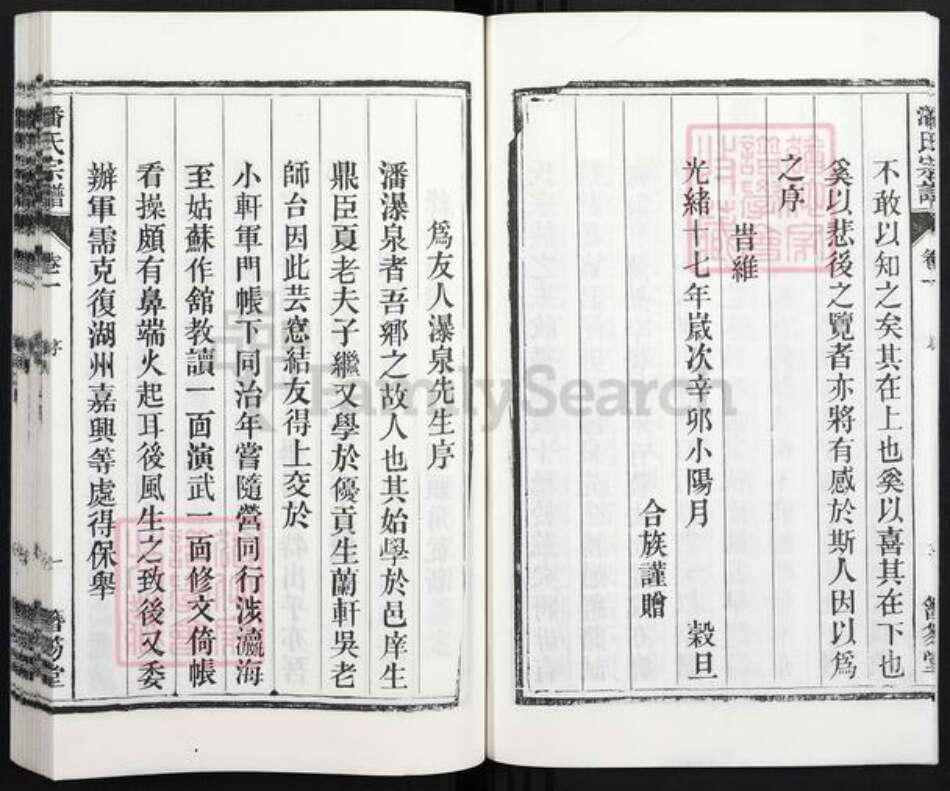 不敢以知之矣其在上也奚以喜其在下也
奚以悲後之覽者亦將有感於斯人因以爲
之序
旹維
光緒十七年嵗次辛卯小陽月 穀旦
合族謹贈
潘氏宗譜 卷一 序 一
爲友人瀑泉先生序
潘瀑泉者吾鄉之故人也其始學於邑庠生
鼎臣夏老夫子繼又學於優貢生蘭軒吳老
師台因此芸窻結友得上交於
小軒軍門帳下同治年嘗隨營同行涉瀛海
至姑蘇作舘教讀一面演武一面修文倚帳
看操頗有鼻端火起耳後風生之致後又委
辦軍需克復湖州嘉興等處得保舉
FamilySearch